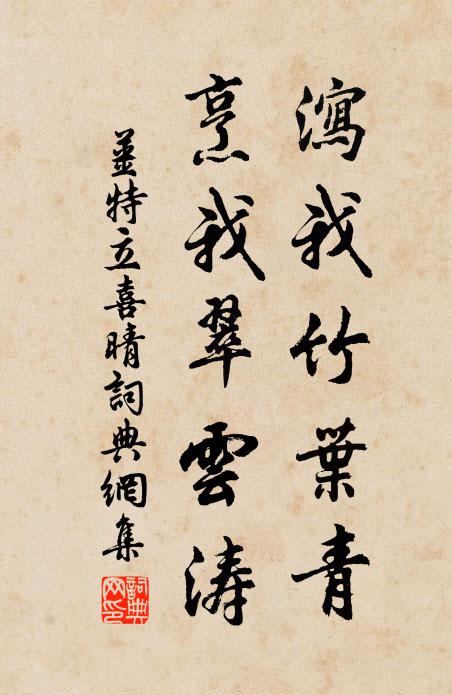 瀉我竹葉青
烹我翠雲濤
姜特立喜晴詞典網集
詞典網印